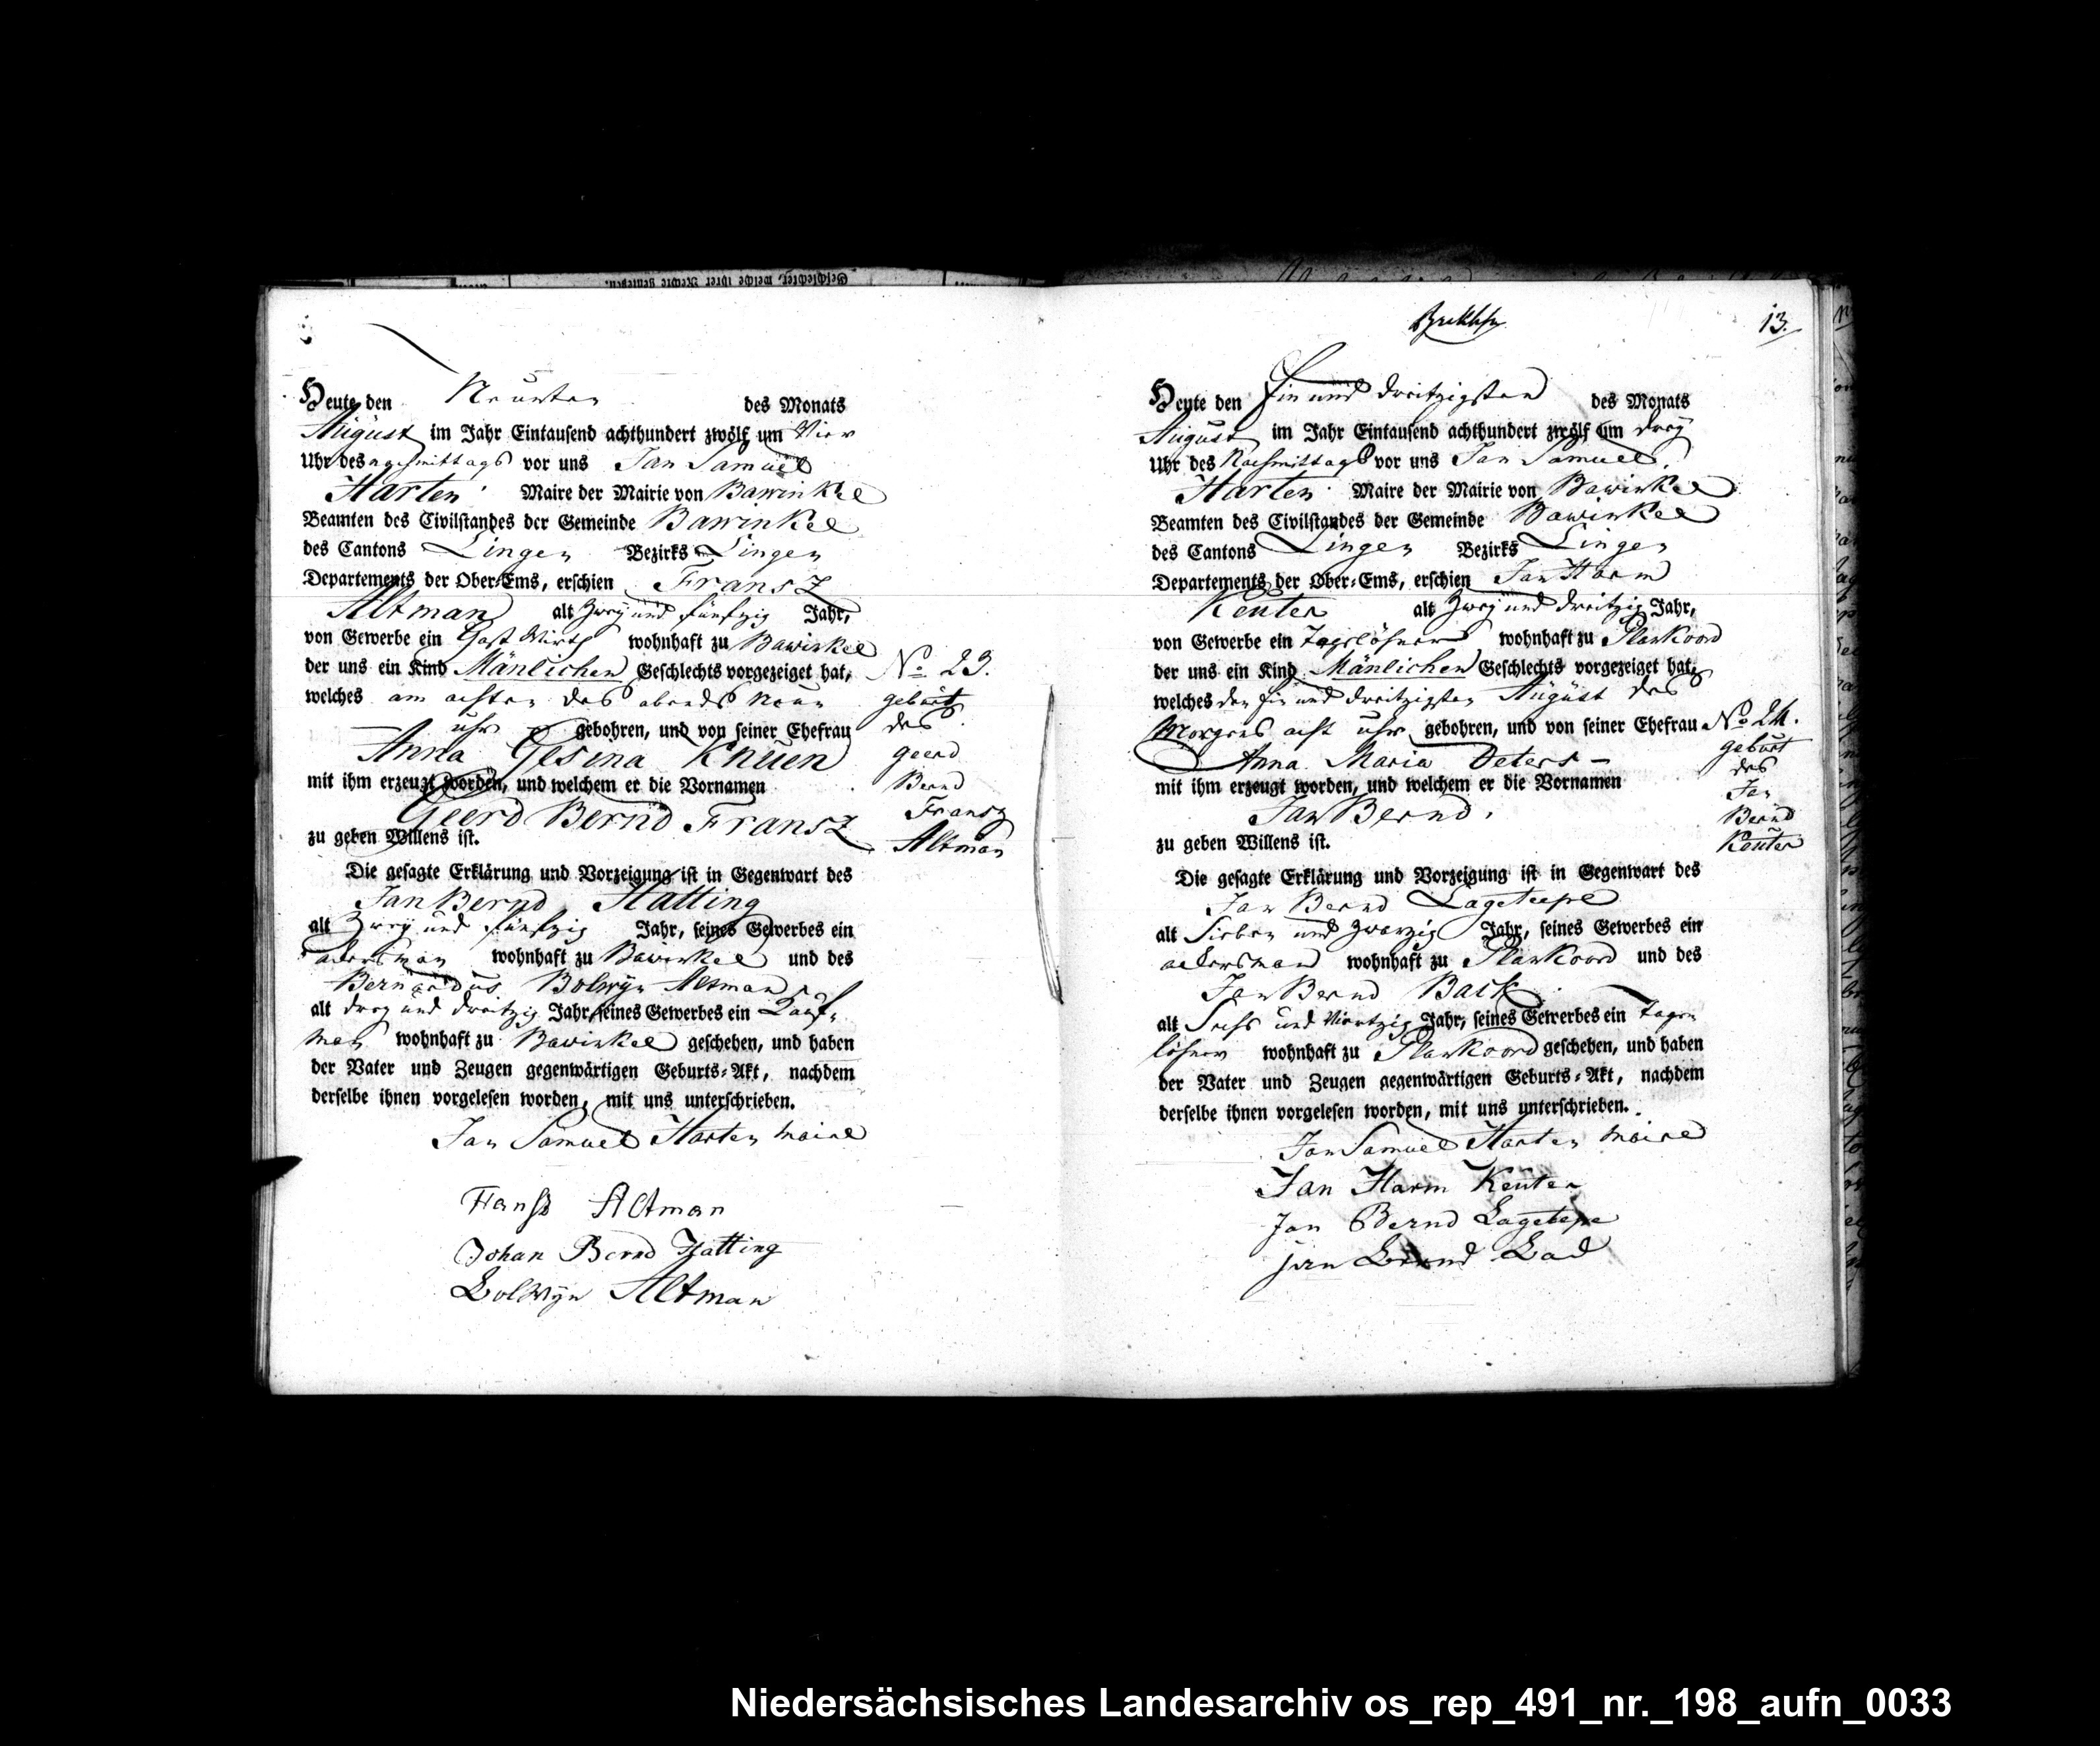 Heute den Neunten des Monats
August im Jahr Eintausend achthundert zwölf um Vier
Uhr des nachmittags vor uns Jan Samuel
Harten Maire der Mairie von Bawinkel
Beamten des Civilstandes der Gemeinde Bawinkel
des Cantons Lingen Bezirks Lingen
Departements der Ober-Ems, erschien Fransz
Altman alt Zwey und fünfzig Jahr,
von Gewerbe ein Gast Wirth wohnhaft zu Bawinkel
der uns ein Kind Mänlichen Geschlechts vorgezeiget hat,
welches am achten des abends Neun
uhr gebohren, und von seiner Ehefrau
Anna Gesina Knuen
mit ihm erzeugt worden, und welchem er die Vornamen
Geerd Bernd Fransz
zu geben Willens ist.
Die gesagte Erklärung und Vorzeigung ist in Gegenwart des
Jan Bernd Hatting
alt Zwey und fünfzig Jahr, seines Gewerbes ein
ackersman wohnhaft zu Bawinkel und des
Bernardus Bolwyn Altman
alt drey und dreitzig Jahr, seines Gewerbes ein Kauf-
man wohnhaft zu Bawinkel geschehen, und haben
der Vater und Zeugen gegenwärtigen Geburts-Akt, nachdem
derselbe ihnen vorgelesen worden, mit uns unterschrieben.
Jan Samuel Harten maire
Fransz Altman
Johan Bernd Hatting
Bolwyn Altman
No 23.
geburt
des
Geerd
Bernd
Fransz
Altman
13.
Heute den Ein und dreitzigsten des Monats
August im Jahr Eintausend achthundert zwölf um drey
Uhr des Nachmittags vor uns Jan Samuel
Harten Maire der Mairie von Bawinkel
Beamten des Civilstandes der Gemeinde Bawinkel
des Cantons Lingen Bezirks Lingen
Departements der Ober-Ems, erschien Jan Harm
Keuter alt Zwey und dreitzig Jahr,
von Gewerbe ein Tagelöhner wohnhaft zu Plankoord
der uns ein Kind Mänlichen Geschlechts vorgezeiget hat,
welches den Ein und dreitzigsten August des
Morgens acht uhr gebohren, und von seiner Ehefrau
Anna Maria Deters
mit ihm erzeugt worden, und welchem er die Vornamen
Jan Bernd
zu geben Willens ist.
Die gesagte Erklärung und Vorzeigung ist in Gegenwart des
Jan Bernd Lageteepe
alt Sieben und Zwanzig Jahr, seines Gewerbes ein
ackersman wohnhaft zu Plankoord und des
Jan Bernd Back
alt Sechs und Viertzig Jahr, seines Gewerbes ein Tage-
löhner wohnhaft zu Plankoord geschehen, und haben
der Vater und Zeugen gegenwärtigen Geburts-Akt, nachdem
derselbe ihnen vorgelesen worden, mit uns unterschrieben.
Jan Samuel Harten maire
Jan Harm Keuter
Jan Bernd Lagetepe
jan Bernd Back
No 24.
geburt
des
Jan
Bernd
Keuter
Niedersächsisches Landesarchiv os_rep_491_nr._198_aufn_0033